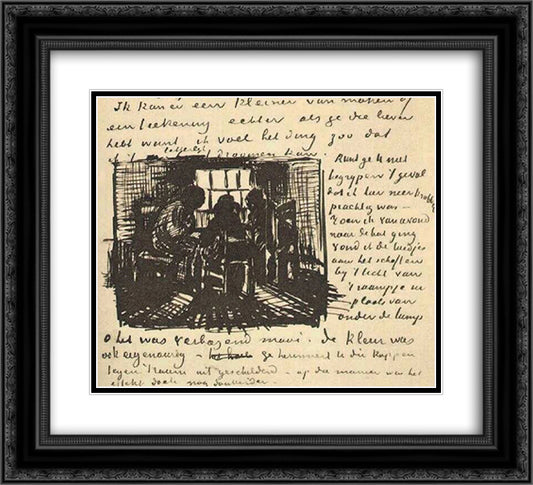 Ik kan er een kleiner van maken of
een teekening echter als ge die liever
hebt want ik voel het ding zoo dat
ik 't droomen kan.
Kunt ge U niet
begrypen 't geval
dat ik hier neer
prachtig was –
Toen ik van avond
naar de hut ging
vond ik de luidjes
aan het schoften
by 't licht van
't raampje in
plaats van
onder de lamp
o het was verbazend mooi. de kleur was
ook eigenaardig – ge herinnert U die koppen
tegen 't raam uit geschilderd – op die manier was het
effekt doch nog donkerder.